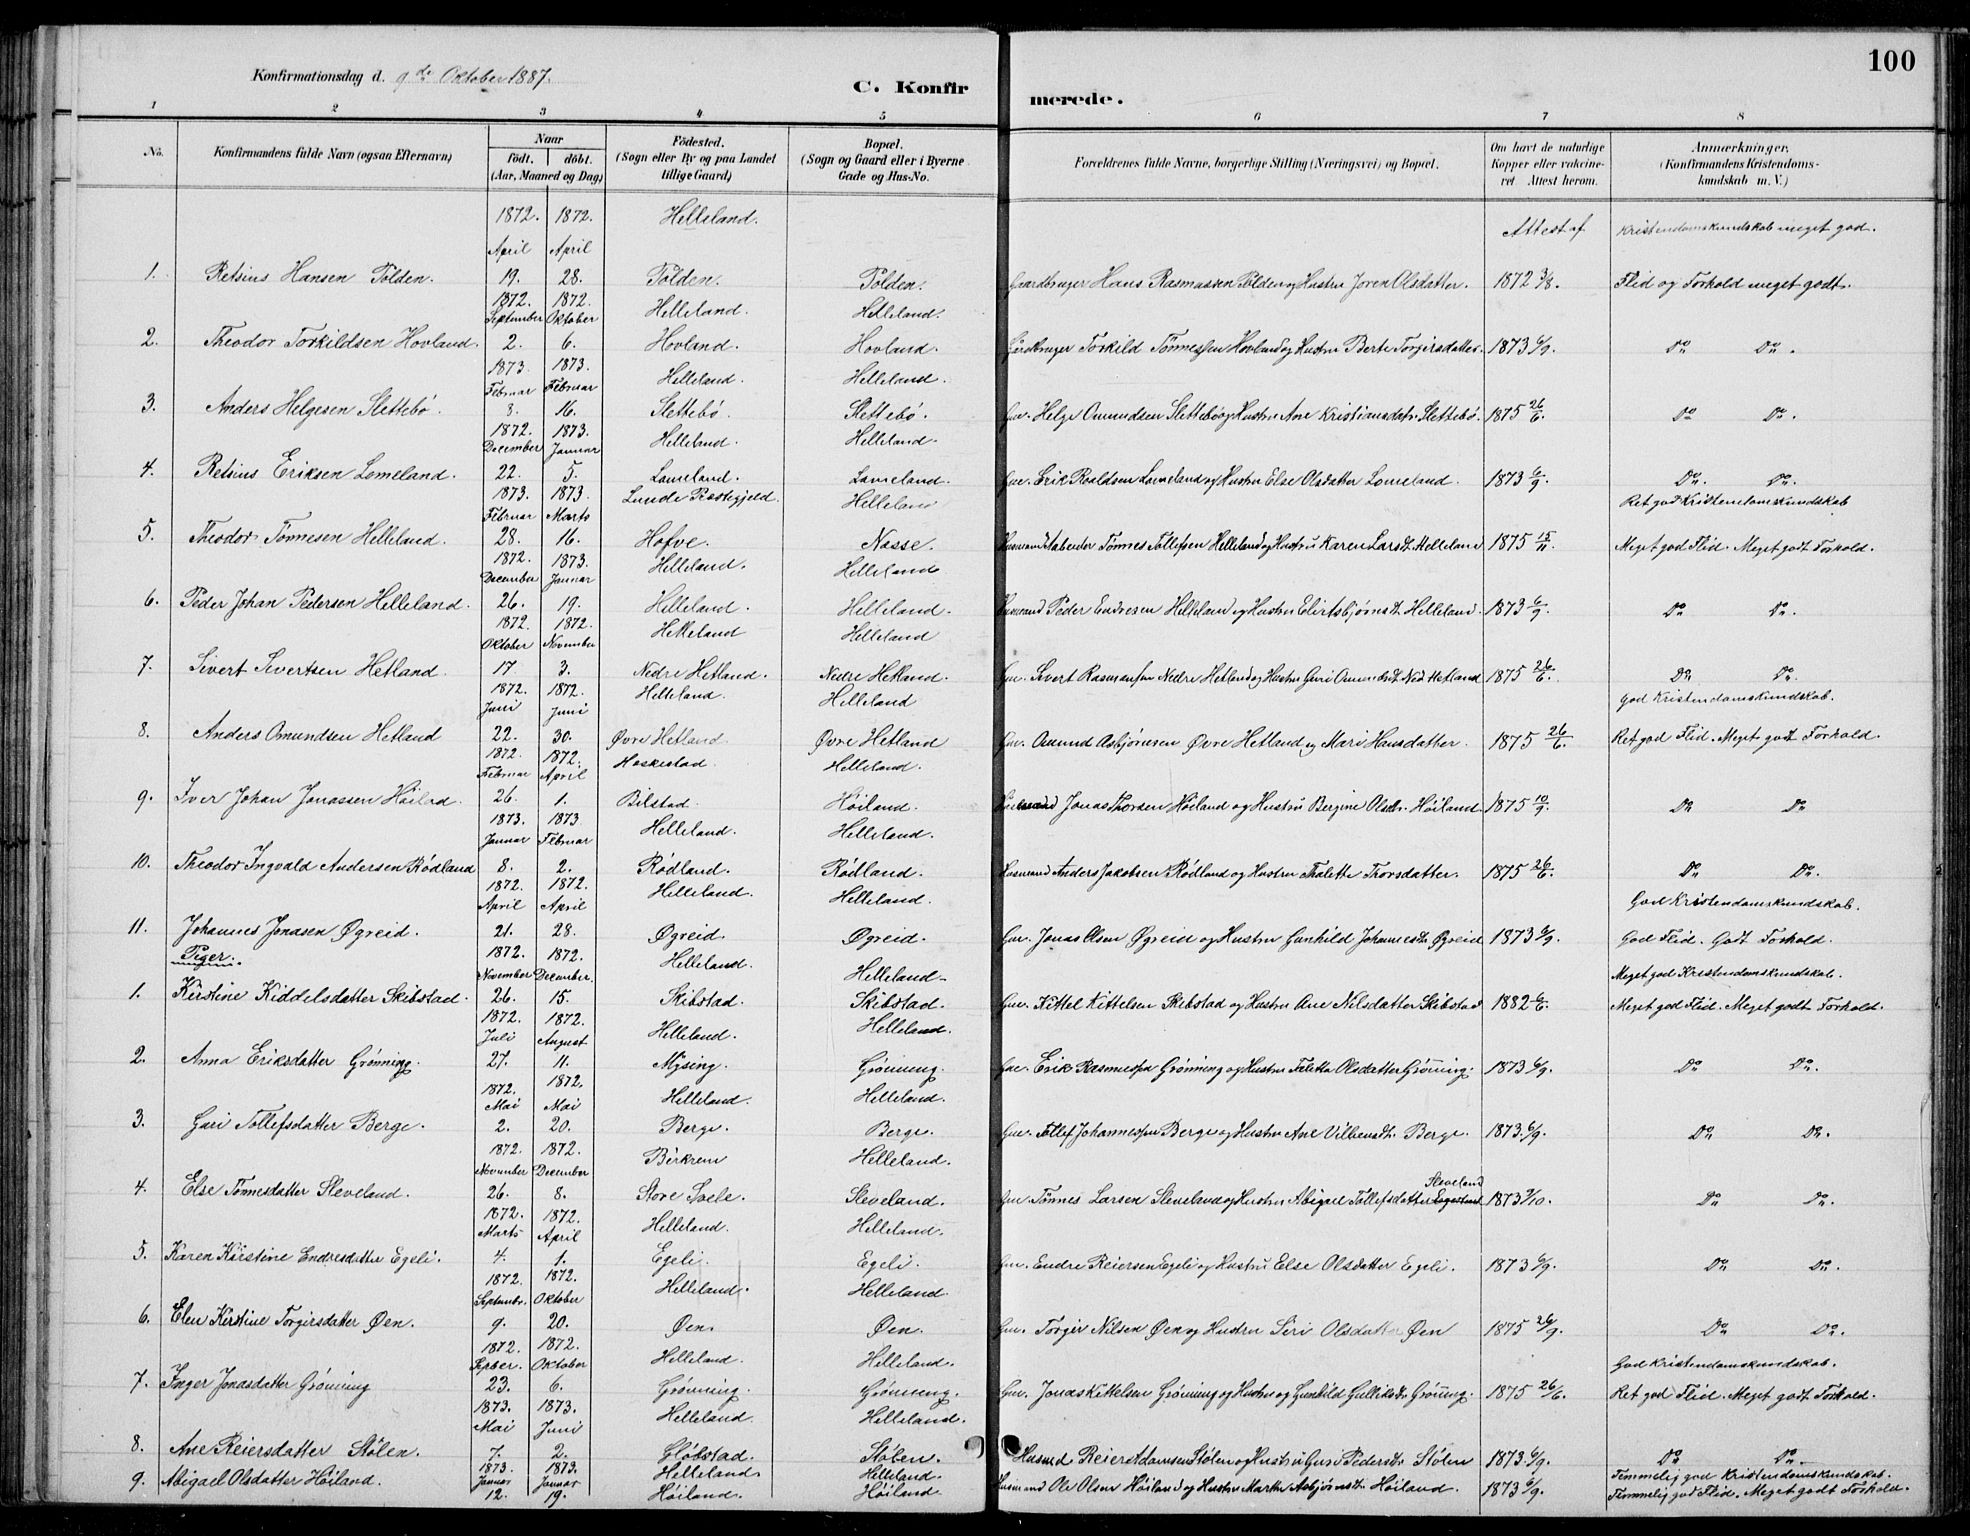 100
Konfirmationsdag d. 9de Oktober 1887.
C. Konfirmerede.
1 2 3 4 5 6 7 8
No.
Konfirmandens fulde Navn (ogsaa Efternavn)
Naar
födt. döbt.
(Aar, Maaned og Dag)
Födested.
(Sogn eller By og paa Landet
tillige Gaard)
Bopæl.
(Sogn og Gaard eller i Byerne
Gade og Hus-No.
Forældrenes fulde Navne, borgerlige Stilling (Næringsvei) og Bopæl.
Om havt de naturlige
Kopper eller vakcine-
ret Attest herom.
Anmærkninger.
(Konfirmandens Kristendoms-
kundskab m. V.)
1872. 1872. Helleland. Attest af Kristendomskundskab meget god.
April April
1. Retsius Hansen Tölden. 19. 28. Tölden. Tölden. Gaardbruger Hans Rasmussen Tölden og Hustru Joren Olsdatter. 1872 3/8. Flid og Forhold meget godt.
1872. 1872. Helleland. Helleland.
September Oktober
2. Theodor Torkildsen Hovland. 2. 6. Hovland. Hovland. Gårdbruger Torkild Tönnessen Hovland og Hustru Berte Torgirsdatter. 1873 6/9. Do Do.
1873. 1873. Helleland. Helleland.
Februar Februar
3. Anders Helgesen Slettebö. 3. 16. Slettebö. Slettebö. Gbr. Helge Omundsen Slettebö og Hustru Ane Kristiansdatr. Slettebö. 1875 26/6. Do Do.
1872. 1873. Helleland. Helleland.
December Januar
4. Retsius Eriksen Lomeland. 22. 5. Lomeland. Lomeland. Gbr. Erik Roaldsen Lomeland og Hustru Else Olsdatter Lomeland. 1873 6/9. Do. Do.
1873. 1873. Lunde Præstegjeld. Helleland Ret god Kristendomskundskab
Februar Marts
5. Theodor Tönnesen Helleland. 28. 16. Hofve. Nasse. Husmand Tönnes Tollefsen Helleland og Hustru Karen Larsdt. Helleland 1875 15/11. Meget god Flid. Meget godt Forhold.
1872. 1873. Helleland. Helleland
December Januar
6. Peder Johan Pedersen Helleland. 26. 19. Helleland. Helleland. Husmand Peder Endresen Helleland og Hustru Helleland. 1873 6/9. Do Do.
1872. 1872. Helleland Helleland
Oktober November
7. Sivert Sivertsen Hetland. 17 3. Nedre Hetland. Nedre Hetland. Gbr. Sivert Rasmussen Nedre Hetland og Hustru Guri Omundsdt. Ned. Hetland 1875 26/6. Do Do.
1872. 1872. Helleland. Helleland god Kristendomskundskab.
Juni Juni
8. Anders Omundsen Hetland 22. 30. Øvre Hetland Øvre Hetland Gbr. Omund Asbjörnsen Øvre Hetland og Mari Hansdatter. 1875 26/6. Ret god Flid. Meget godt Forhold.
1872. 1872. Heskestad. Helleland.
Februar April
9. Iver Johan Jonassen Höiland. 26. 1. Bilstad. Höiland. Husmand Jonas Thorsen Höiland og Hustru Bergine Olsdtr. Höiland. 1875 10/9. Do Do
1873. 1873. Helleland. Helleland.
Januar Februar
10. Theodor Ingvald Andersen Rödland 8. 2. Rödland. Rödland. Husmand Anders Jakobsen Rödland og Hustru Thalette Thorsdatter. 1875 26/6. Do Do.
1872. 1872. Helleland. Helleland. God Kristendomskundskab.
April April
11. Johannes Jonasen Øgreid. 21. 28. Øgreid. Øgreid. Gbr. Jonas Olsen Øgreid og Hustru Gunhild Johannesdtr. Øgreid 1873 6/9. God Flid. Godt Forhold.
Piger. 1872. 1872. Helleland. Helleland. Meget god Kristendomskundskab.
November December.
1. Kirstine Kiddelsdatter Skibstad. 26. 15. Skibstad. Skibstad. Gbr. Kittel Kittelsen Skibstad og Hustru Ane Nilsdatter Skibstad 1882 6/6. Meget god Flid. Meget godt Forhold.
1872. 1872. Helleland. Helleland.
Juli August
2. Anna Eriksdatter Grönning. 27. 11. Mysing. Grönning. Gbr. Erik Rasmussen Grönning og Hustru Taletta Olsdatter Grönning. 1873 6/9. Do Do.
1872. 1872. Helleland. Helleland.
Mai Mai
3. Guri Tollefsdatter Berge. 2. 20. Berge. Berge. Gbr. Tollef Johannessen Berge og Hustru Ane Berge. 1873. 6/9. Do Do.
1872. 1872. Birkrem Helleland.
November December
4. Else Tönnesdatter Sleveland. 26. 8. Store Svele. Sleveland. Gbr. Tönnes Larsen Sleveland og Hustru Abigael Tollefsdatter Sleveland 1873 9/10. Do Do.
1872. 1872. Helleland. Helleland.
Marts April
5. Karen Kirstine Endresdatter Egeli. 4. 1. Egeli. Egeli. Gbr. Endre Reiersen Egeli og Hustru Else Olsdatter Egeli. 1873 6/9. Do Do.
1872. 1872. Helleland. Helleland.
Septembr. Oktober
6. Elen Kirstine Torgirsdatter Øen. 9. 20. Øen. Øen. Gbr. Torgir Nilsen Øen og Hustru Siri Olsdatter Øen 1875 26/9. Do Do.
1872. 1872. Helleland. Helleland. God Kristendomskundskab.
Septber. Oktober
7. Inger Jonasdatter Grönning 23. 6. Grönning. Grönning. Gbr. Jonas Kittelsen Grönning og Hustru Gunhild Gulliksdt. Grönning. 1875 26/6. Ret god Flid. Meget godt Forhold.
1873. 1873. Helleland. Helleland.
Mai Juni
8. Ane Reiersdatter Stölen. 7. 2. Glöbstad. Stölen. Husmd Reier Adamsen Stölen og Hustru Guri Pedersdtr. Stölen 1873. 6/9. Do Do.
1873. 1873. Helleland. Helleland. Temmelig god Kristendomskundskab.
Januar Januar
9. Abigael Olsdatter Höiland. 12. 19. Höiland. Höiland. Husmand Ole Olsen Höiland og Hustru Marthe Asbjörnsdt. Höiland. 1873 6/9. Temmelig god Flid. Meget godt Forhold.